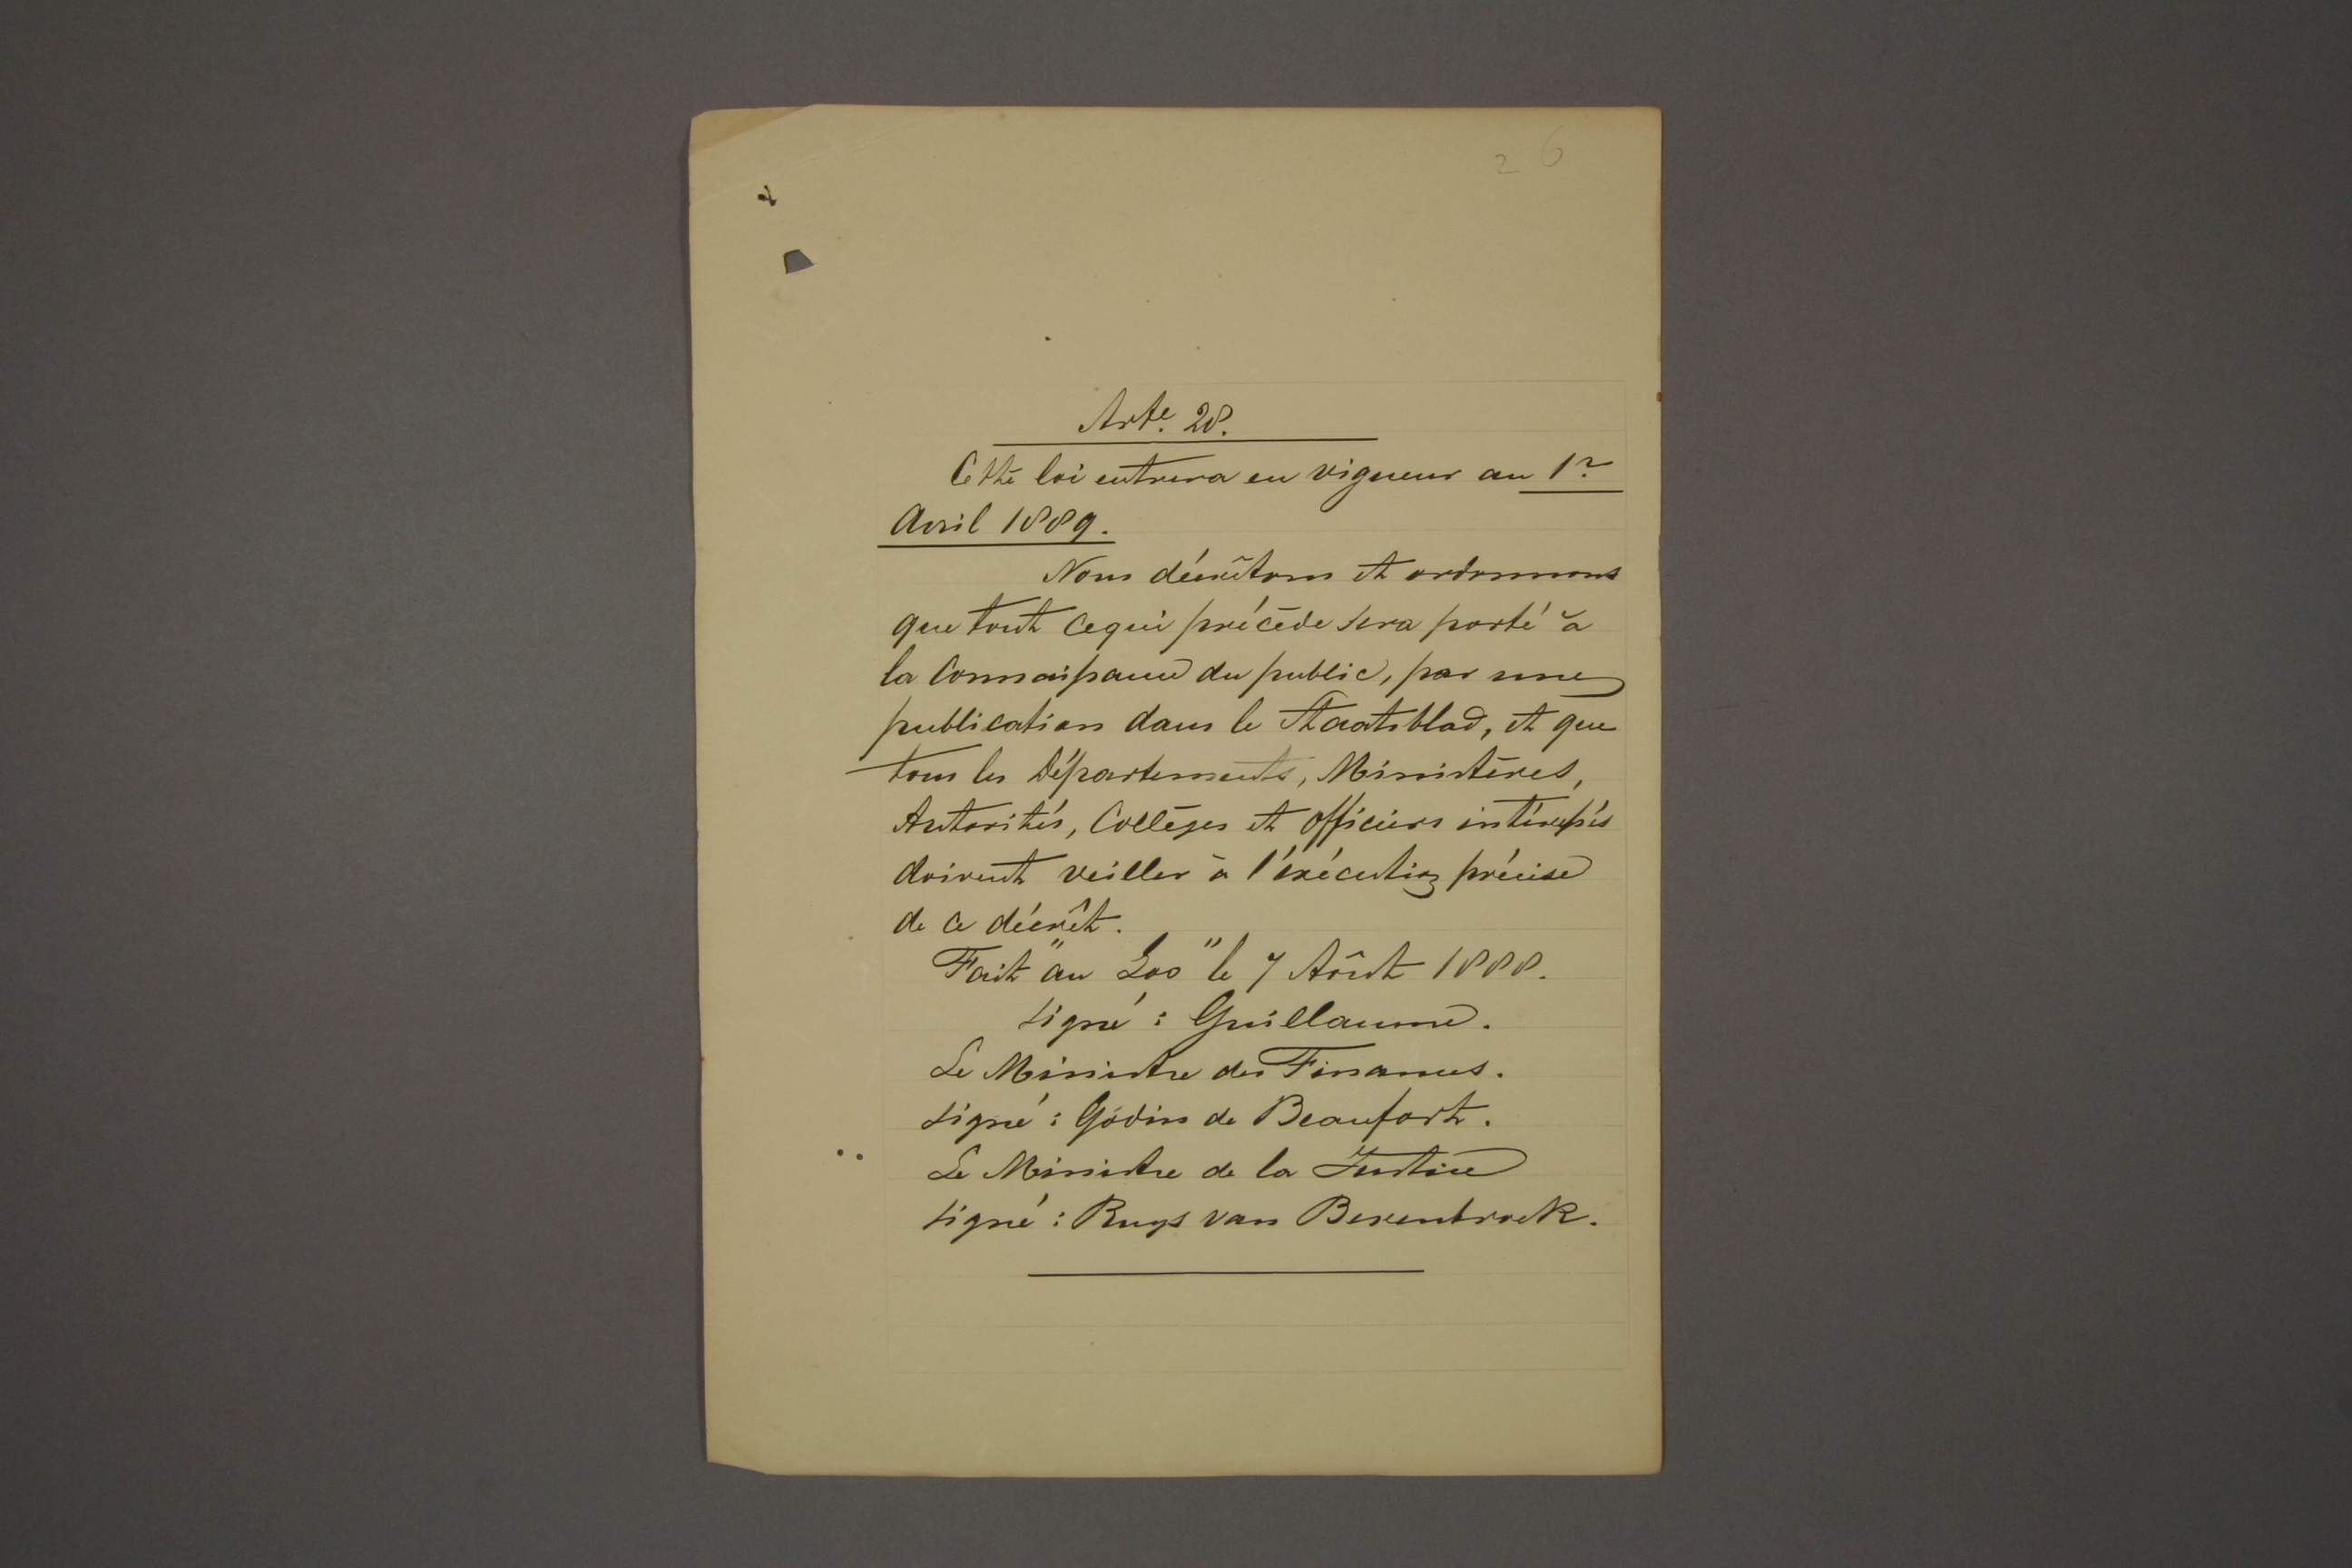 26
Arte. 28.
Cette loi entrera en vigueur au 1r
Avril 1889.
Nous décrêtons et ordonnons
que tout ce qui précède sera porté à
la Connaissance du public, par une
publication dans le Staatsblad, et que
tous les Départements, Ministères,
Autorités, Collèges et Officiers intéressés
doivent veiller à l'exécution précise
de ce décrêt.
Fait "au Loo" le 7 Aôut 1888.
signé : Guillaume.
Le Ministre des Finances.
signé : Godin de Beaufort.
Le Ministre de la Justice
signé : Ruys van Berenbroek.